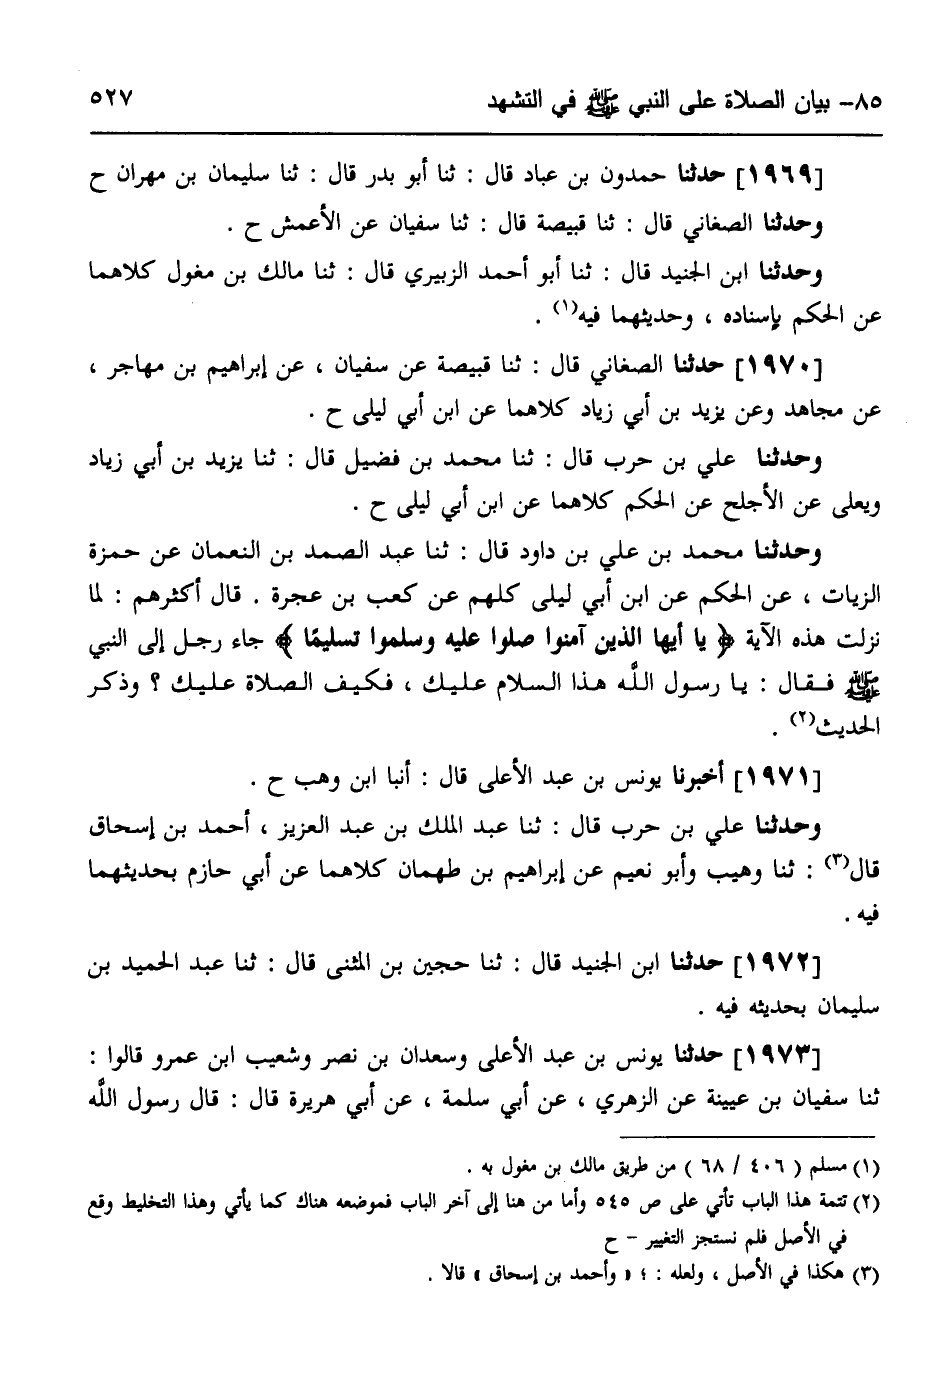 ٨٥- بيان الصلاة على النبي ﷺ في التشهد ٥٢٧
[١٩٦٩] حدثنا حمدون بن عباد قال : ثنا أبو بدر قال : ثنا سليمان بن مهران ح
وحدثنا الصغاني قال : ثنا قبيصة قال : ثنا سفيان عن الأعمش ح .
وحدثنا ابن الجنيد قال : ثنا أبو أحمد الزبيري قال : ثنا مالك بن مغول كلاهما
عن الحكم بإسناده ، وحديثهما فيه(١) .
[١٩٧٠] حدثنا الصغاني قال : ثنا قبيصة عن سفيان ، عن إبراهيم بن مهاجر ،
عن مجاهد وعن يزيد بن أبي زياد كلاهما عن ابن أبي ليلى ح .
وحدثنا علي بن حرب قال : ثنا محمد بن فضيل قال : ثنا يزيد بن أبي زياد
ويعلى عن الأجلح عن الحكم كلاهما عن ابن أبي ليلى ح .
وحدثنا محمد بن علي بن داود قال : ثنا عبد الصمد بن النعمان عن حمزة
الزيات ، عن الحكم عن ابن أبي ليلى كلهم عن كعب بن عجرة . قال أكثرهم : لما
نزلت هذه الآية ﴿ يا أيها الذين آمنوا صلوا عليه وسلموا تسليمًا ﴾ جاء رجل إلى النبي
ﷺ فقال : يا رسول اللَّه هذا السلام عليك ، فكيف الصلاة عليك ؟ وذكر
الحديث(٢) .
[١٩٧١] أخبرنا يونس بن عبد الأعلى قال : أنبا ابن وهب ح .
وحدثنا علي بن حرب قال : ثنا عبد الملك بن عبد العزيز ، أحمد بن إسحاق
قال(٣) : ثنا وهيب وأبو نعيم عن إبراهيم بن طهمان كلاهما عن أبي حازم بحديثهما
فيه .
[١٩٧٢] حدثنا ابن الجنيد قال : ثنا حجين بن المثنى قال : ثنا عبد الحميد بن
سليمان بحديثه فيه .
[١٩٧٣] حدثنا يونس بن عبد الأعلى وسعدان بن نصر وشعيب ابن عمرو قالوا :
ثنا سفيان بن عيينة عن الزهري ، عن أبي سلمة ، عن أبي هريرة قال : قال رسول اللَّه
(١) مسلم ( ٤٠٦ / ٦٨ ) من طريق مالك بن مغول به .
(٢) تتمة هذا الباب تأتي على ص ٥٤٥ وأما من هنا إلى آخر الباب فموضعه هناك كما يأتي وهذا التخليط وقع
في الأصل فلم نستجز التغيير - ح
(٣) هكذا في الأصل ، ولعله : ؛ « وأحمد بن إسحاق » قالا .